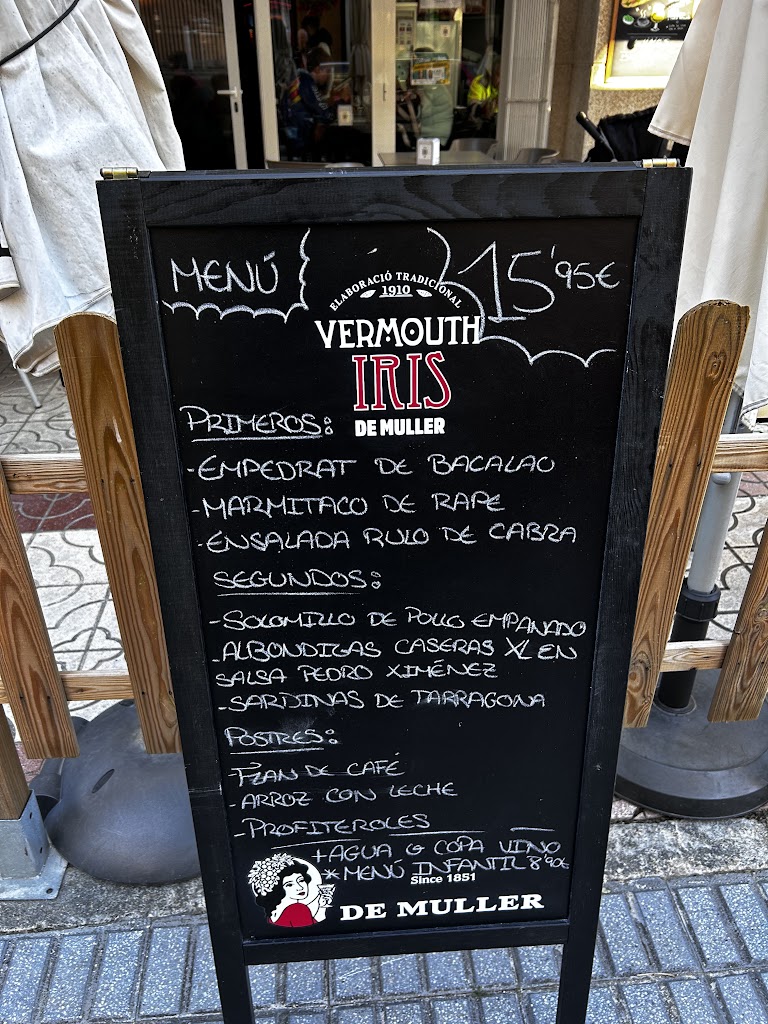 MENÚ
15'95€
ELABORACIÓ TRADICIONAL
1910
VERMOUTH
IRIS
DE MULLER
PRIMEROS:
-EMPEDRAT DE BACALAO
-MARMITACO DE RAPE
-ENSALADA RULO DE CABRA
SEGUNDOS:
-SOLOMILLO DE POLLO EMPANADO
-ALBONDIGAS CASERAS XL EN
SALSA PEDRO XIMÉNEZ
-SARDINAS DE TARRAGONA
POSTRES:
-FLAN DE CAFÉ
-ARROZ CON LECHE
-PROFITEROLES
+AGUA O COPA VINO
*MENÚ INFANTIL 8'90€
Since 1851
DE MULLER